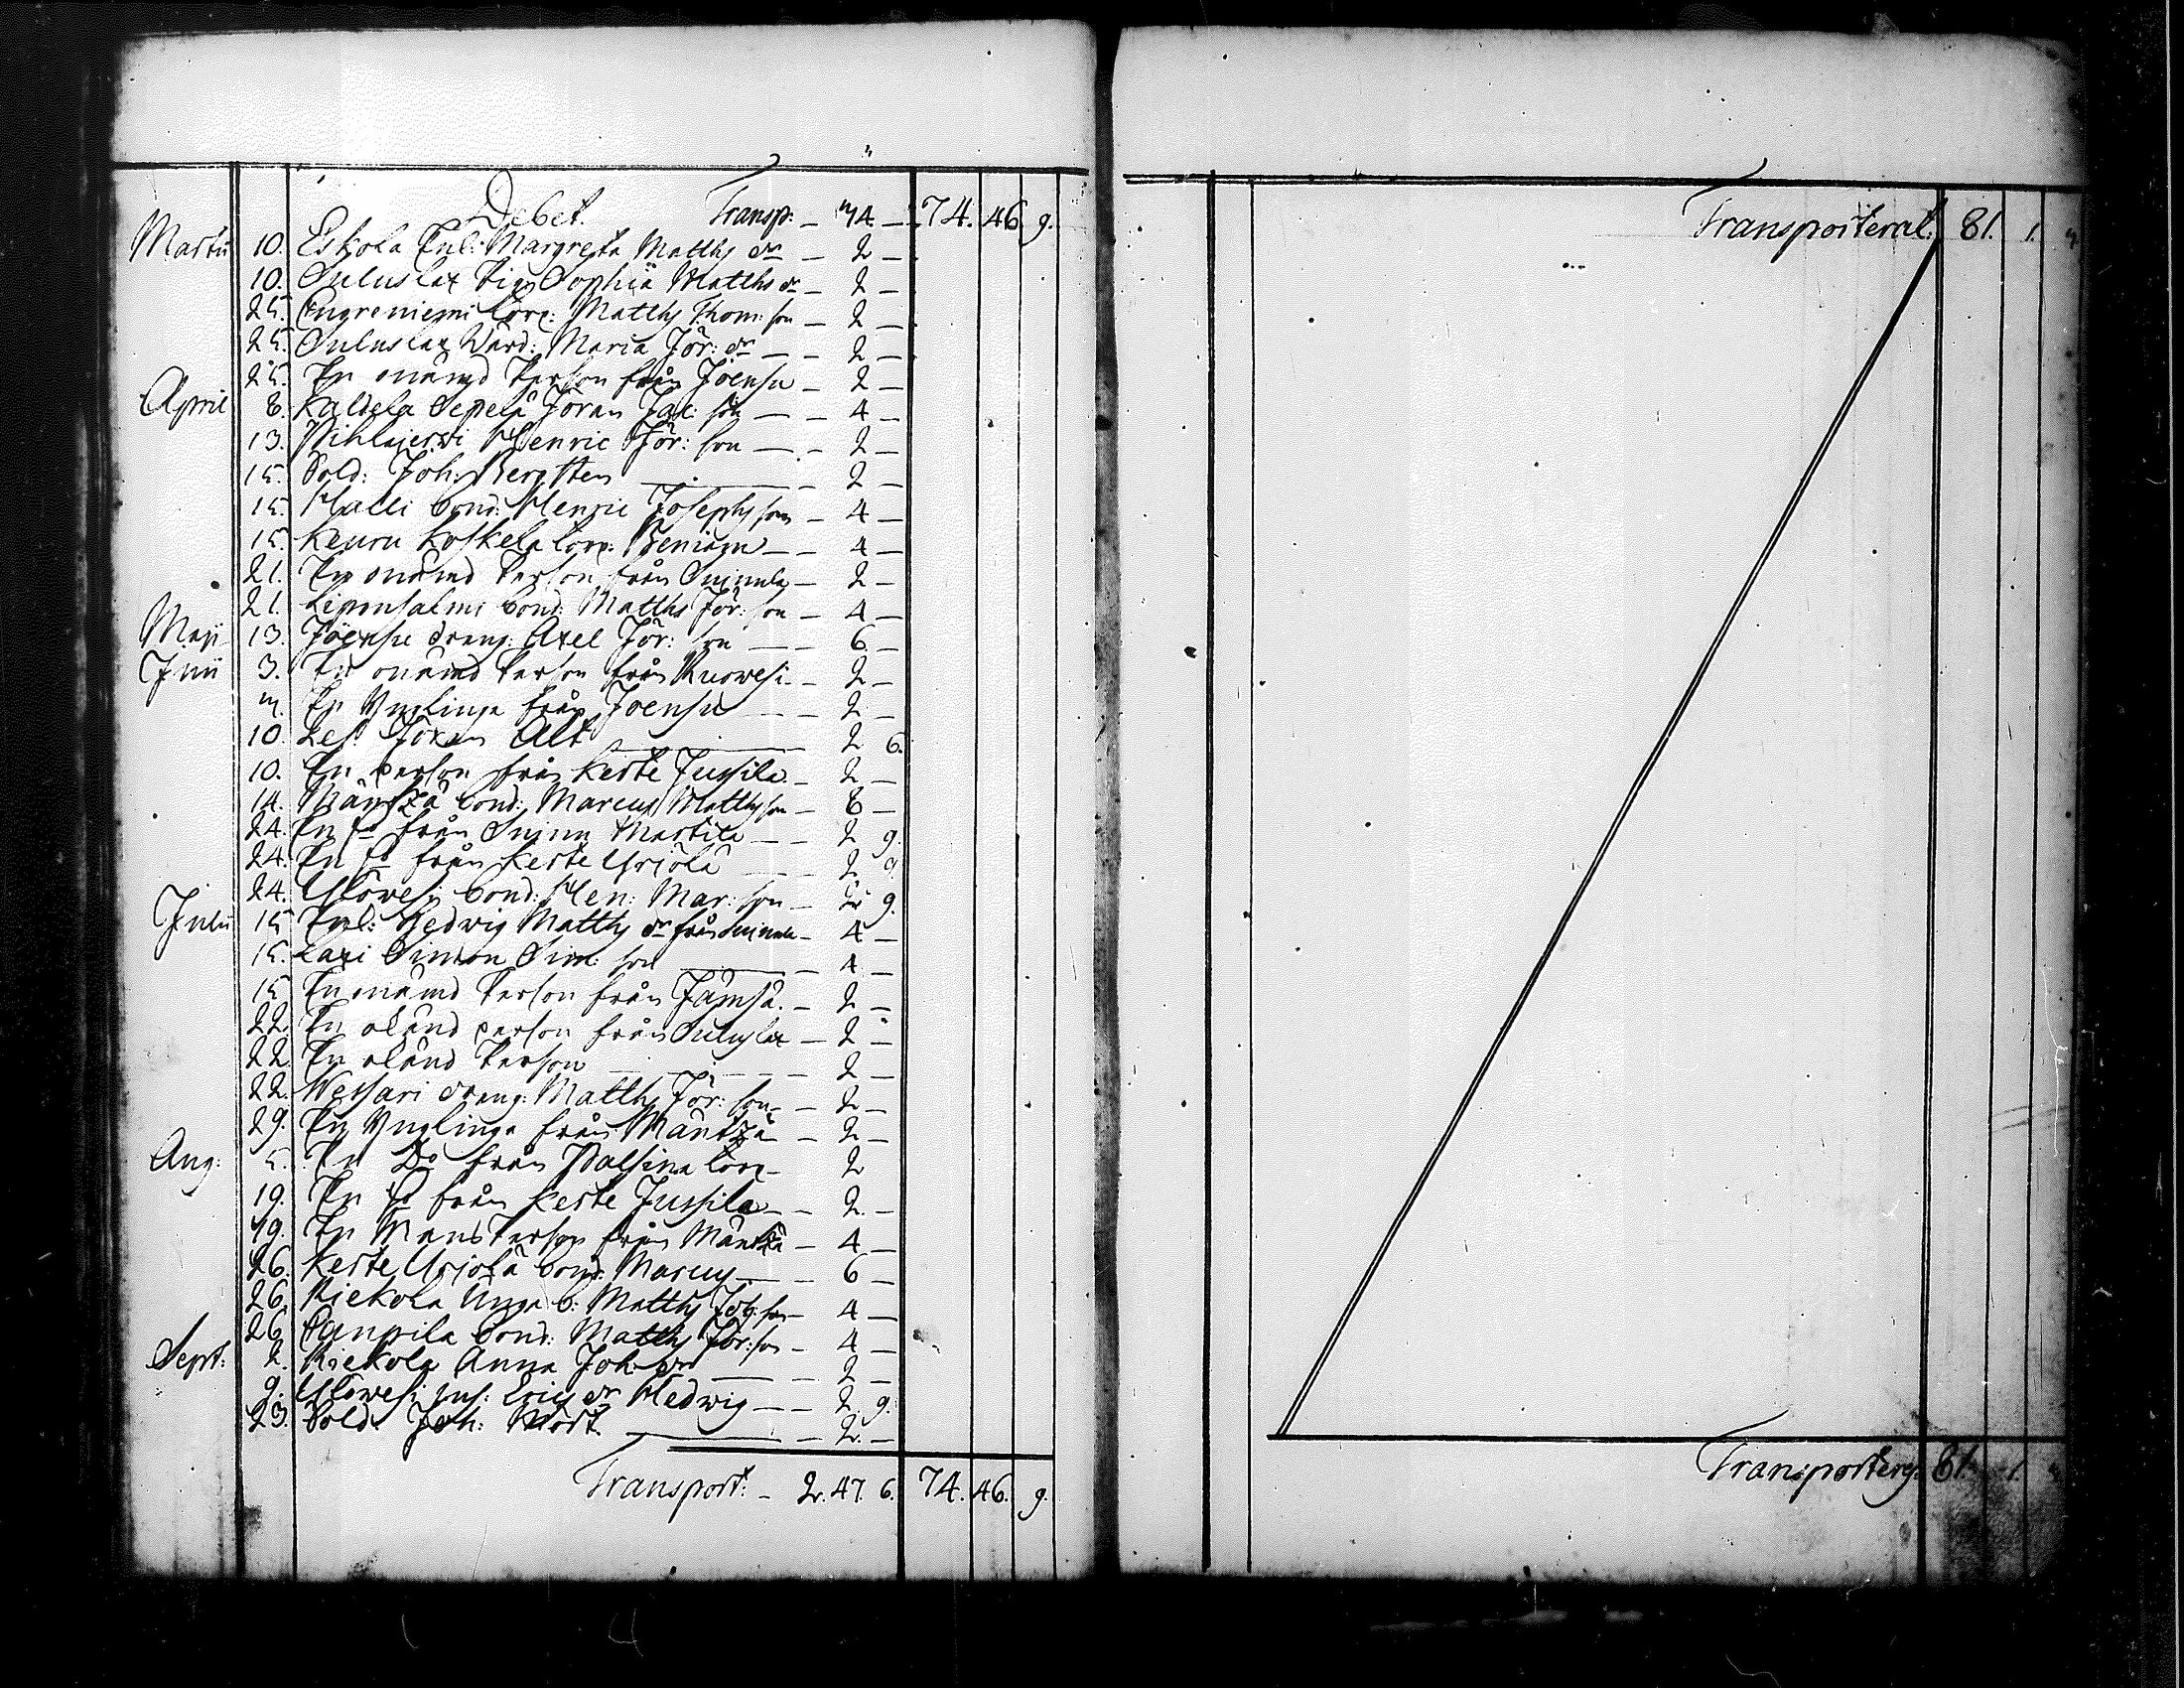 Debet. Transp: — 74. — 74. 46. 9.
Martii 10. Eskola Enl: Margreta Matths dr — 2 —
10. Suluslax Pig. Sophia Matths dr — 2 —
25. torp: Matths Thom: son — 2 —
25. Suluslax Maria Jör: dr — — 2 —
25. En onämd Person från Joensu — 2 —
April 6. Kaldela Sepelä Jöran Jac: son — — 4 —
13. Pihlajerwi Henric Jör: son — — 2 —
15. Sold: Joh: Bergsten — 2 —
15. Halli bond: Henric Josephsson — 4 —
15. Keuru Koskela torp: Beniam — — 4 —
21. En onämd Person från Suinula — 2 —
21. Liponsalmi bond: Matths Jör: son — 4 —
Maji 13. Joensu dräng: Axel Jör: son — — 6 —
Junii 3. En onämd Person från Ruowesi — 2 —
En Ynglinga från Joensu — — 2 —
10. Jöran Alt — 2 6.
10. En person från Keste Jussila — 2 —
14. Mäntzä bond: Marcus Matthsson — 6 —
24. En do från Suinu Martila — — 2 9.
24. En do från Keste Yrjölä — 2 9
24. Ylöwesi bond: Hen: Mar: son — 2 9.
Julii 15 Enl: Hedwig Matths dr från Suinula — 4 —
15. Laxi Simon Sim: son — — 4 —
15 En onämd Person från Jämsä. — 2 —
22. En okänd person från Suluslax — 2 —
22. En okänd Person — — 2 —
22. Wessari dräng: Matths Jör: son — — 2 —
29. En Ynglinga från Mäntzä — 2 —
Aug: 5. En Do från Palsina torp — 2
19. En do från Keste Jussila — — 2 —
19. En Mans Person från Mäntzä — 4 —
26. Keste Yrjölä bond: Marcus — — 6 —
26. Riekola Unga b: Matths Joh: son — 4 —
26 Panpila bond: Matths Jör: son — 4 —
Sept: 2. Riekola Anna Joh: dr — 2 —
9. Ylöwesi Erics dr Hedwig — — 2 9.
23. Sold: Joh: Mört — — 2. —
Transport: — 2. 47. 6. 74. 46. 9.
Transporterat: 81. 1.
Transporteras: 81. 1.